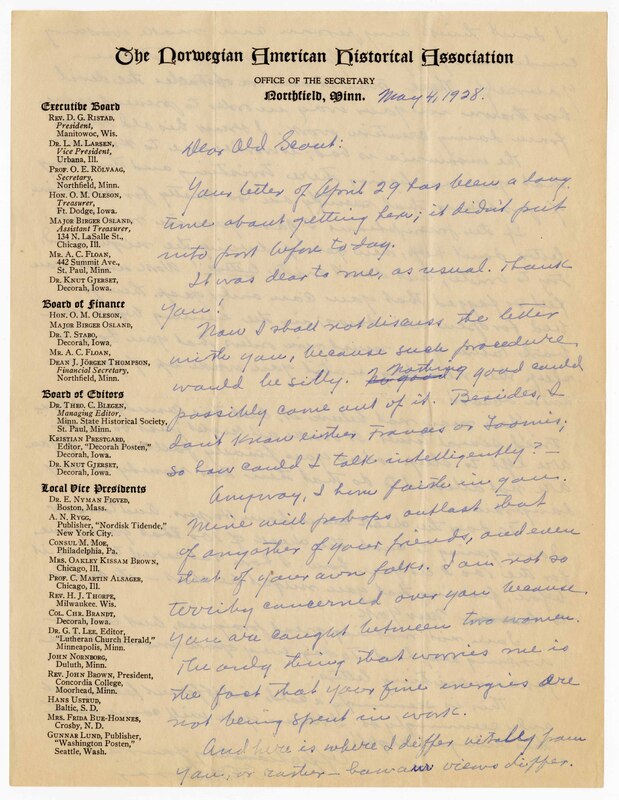 The Norwegian American Historical Association
OFFICE OF THE SECRETARY
Northfield, Minn. May 4, 1928.
Executive Board
REV. D. G. RISTAD,
President,
Manitowoc, Wis.
DR. L. M. LARSEN,
Vice President,
Urbana, Ill.
PROF. O. E. RÖLVAAG,
Secretary,
Northfield, Minn.
HON. O. M. OLESON,
Treasurer,
Ft. Dodge, Iowa.
MAJOR BIRGER OSLAND,
Assistant Treasurer,
134 N. LaSalle St.,
Chicago, Ill.
MR. A. C. FLOAN,
442 Summit Ave.,
St. Paul, Minn.
DR. KNUT GJERSET,
Decorah, Iowa.
Board of Finance
HON. O. M. OLESON,
MAJOR BIRGER OSLAND,
DR. T. STABO,
Decorah, Iowa.
MR. A. C. FLOAN,
DEAN J. JÖRGEN THOMPSON,
Financial Secretary,
Northfield, Minn.
Board of Editors
DR. THEO. C. BLEGEN,
Managing Editor,
Minn. State Historical Society,
St. Paul, Minn.
KRISTIAN PRESTGARD,
Editor, "Decorah Posten,"
Decorah, Iowa.
DR. KNUT GJERSET,
Decorah, Iowa.
Local Vice Presidents
DR. E. NYMAN FIGVED,
Boston, Mass.
A. N. RYGG,
Publisher, "Nordisk Tidende,"
New York City.
CONSUL M. MOE,
Philadelphia, Pa.
MRS. OAKLEY KISSAM BROWN,
Chicago, Ill.
PROF. C. MARTIN ALSAGER,
Chicago, Ill.
REV. H. J. THORPE,
Milwaukee. Wis.
COL. CHR. BRANDT,
Decorah, Iowa.
DR. G. T. LEE, Editor,
"Lutheran Church Herald,"
Minneapolis, Minn.
JOHN NORNBORG,
Duluth, Minn.
REV. JOHN BROWN, President,
Concordia College,
Moorhead, Minn.
HANS USTRUD,
Baltic, S. D.
MRS. FRIDA BUE-HOMNES,
Crosby, N. D.
GUNNAR LUND, Publisher,
"Washington Posten,"
Seattle, Wash.
Dear Old Scout:
Your letter of April 29 has been a long
time about getting here; it didn't put
into port before today.
It was dear to me, as usual. Thank
you!
Now I shall not discuss the letter
with you, because such procedure
would be silly. No good Nothing good could
possibly come out of it. Besides, I
don't know either Frances or Loomis;
so how could I talk intelligently? —
Anyway, I have faith in you.
Mine will perhaps outlast that
of any other of your friends, and even
that of your own folks. I am not so
terribly concerned over you because
you are caught between two women.
The only thing that worries me is
the fact that your fine energies are
not being spent in work.
And here is where I differ vitally from
you, or rather – our views differ.